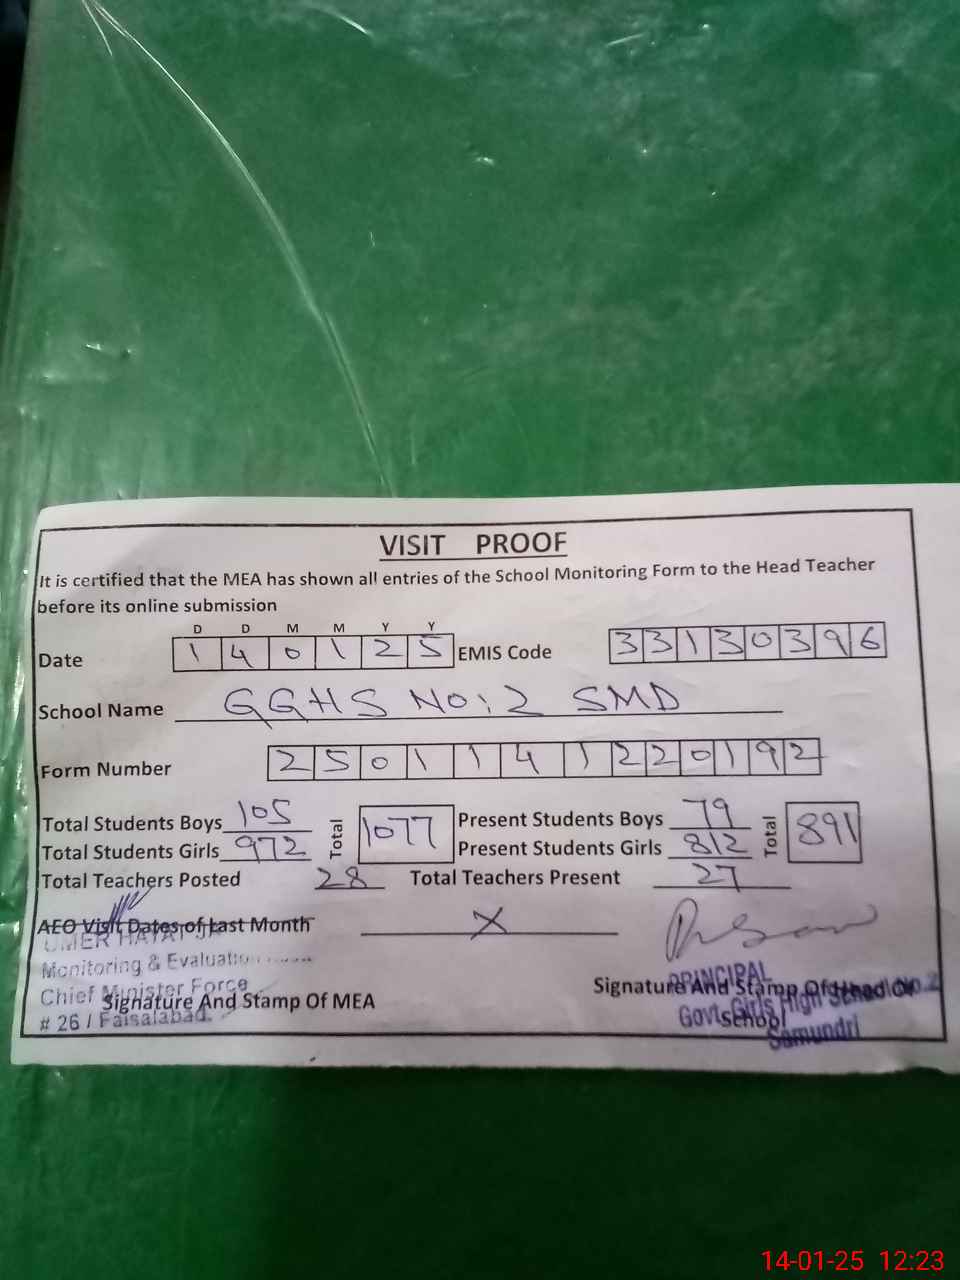 VISIT PROOF
It is certified that the MEA has shown all entries of the School Monitoring Form to the Head Teacher
before its online submission
D D M M Y Y
Date 1 4 0 1 2 5 EMIS Code 3 3 1 3 0 3 9 6
School Name GGHS No: 2 SMD
Form Number 2 5 0 1 1 4 1 2 2 0 1 9 2
Total Students Boys 105 Total 1077 Present Students Boys 79 Total 891
Total Students Girls 972 Present Students Girls 812
Total Teachers Posted 28 Total Teachers Present 27
AEO Visit Dates of Last Month X
UMER HAYAT
Monitoring & Evaluatio
Chief Minister Force
# 26 / Faisalabad.
Signature And Stamp Of MEA
Signature And Stamp Of Head Of
School
PRINCIPAL
Govt. Girls High School No. 2
Samundri
14-01-25 12:23